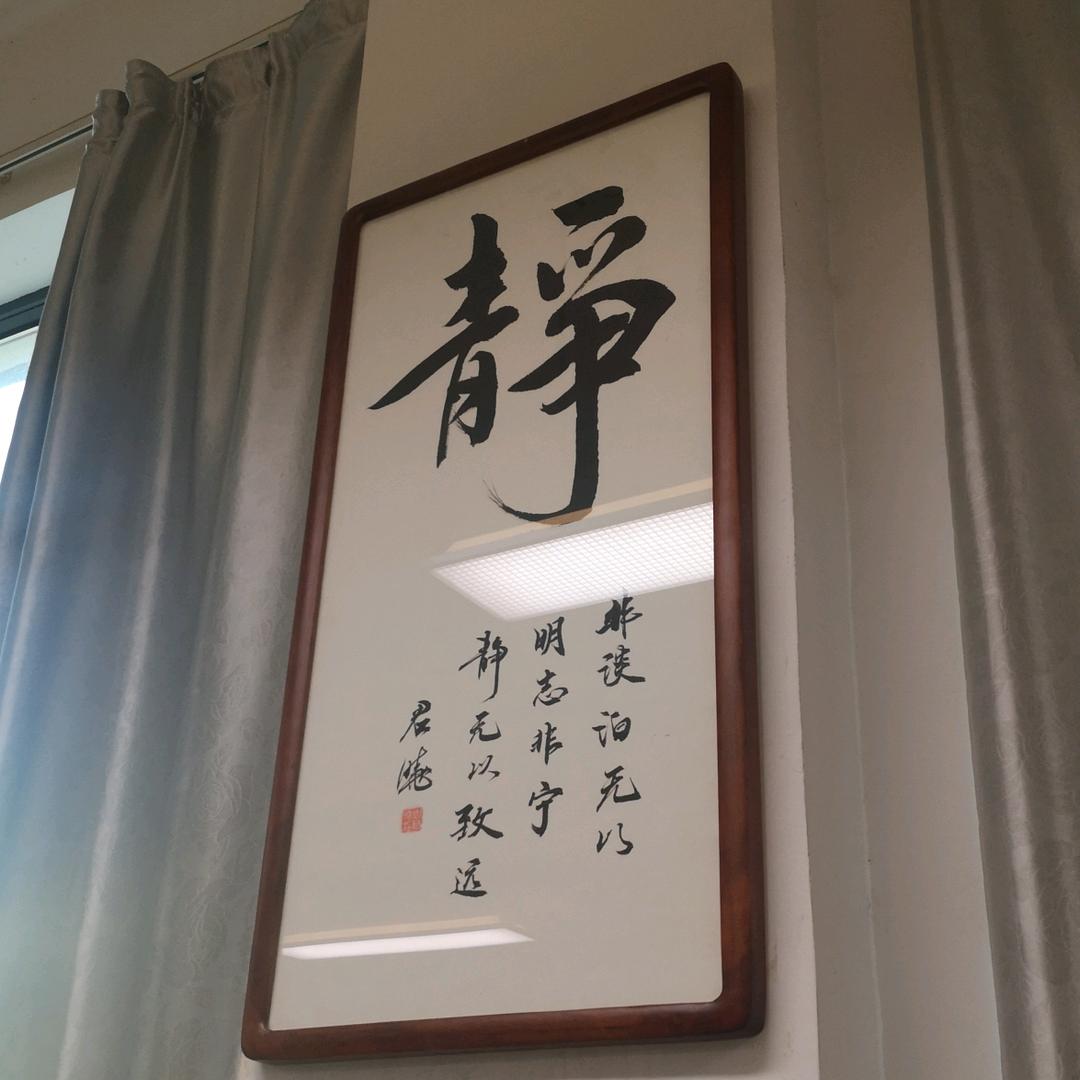 靜
非谈泊无以
明志非宁
静无以致远
君曉